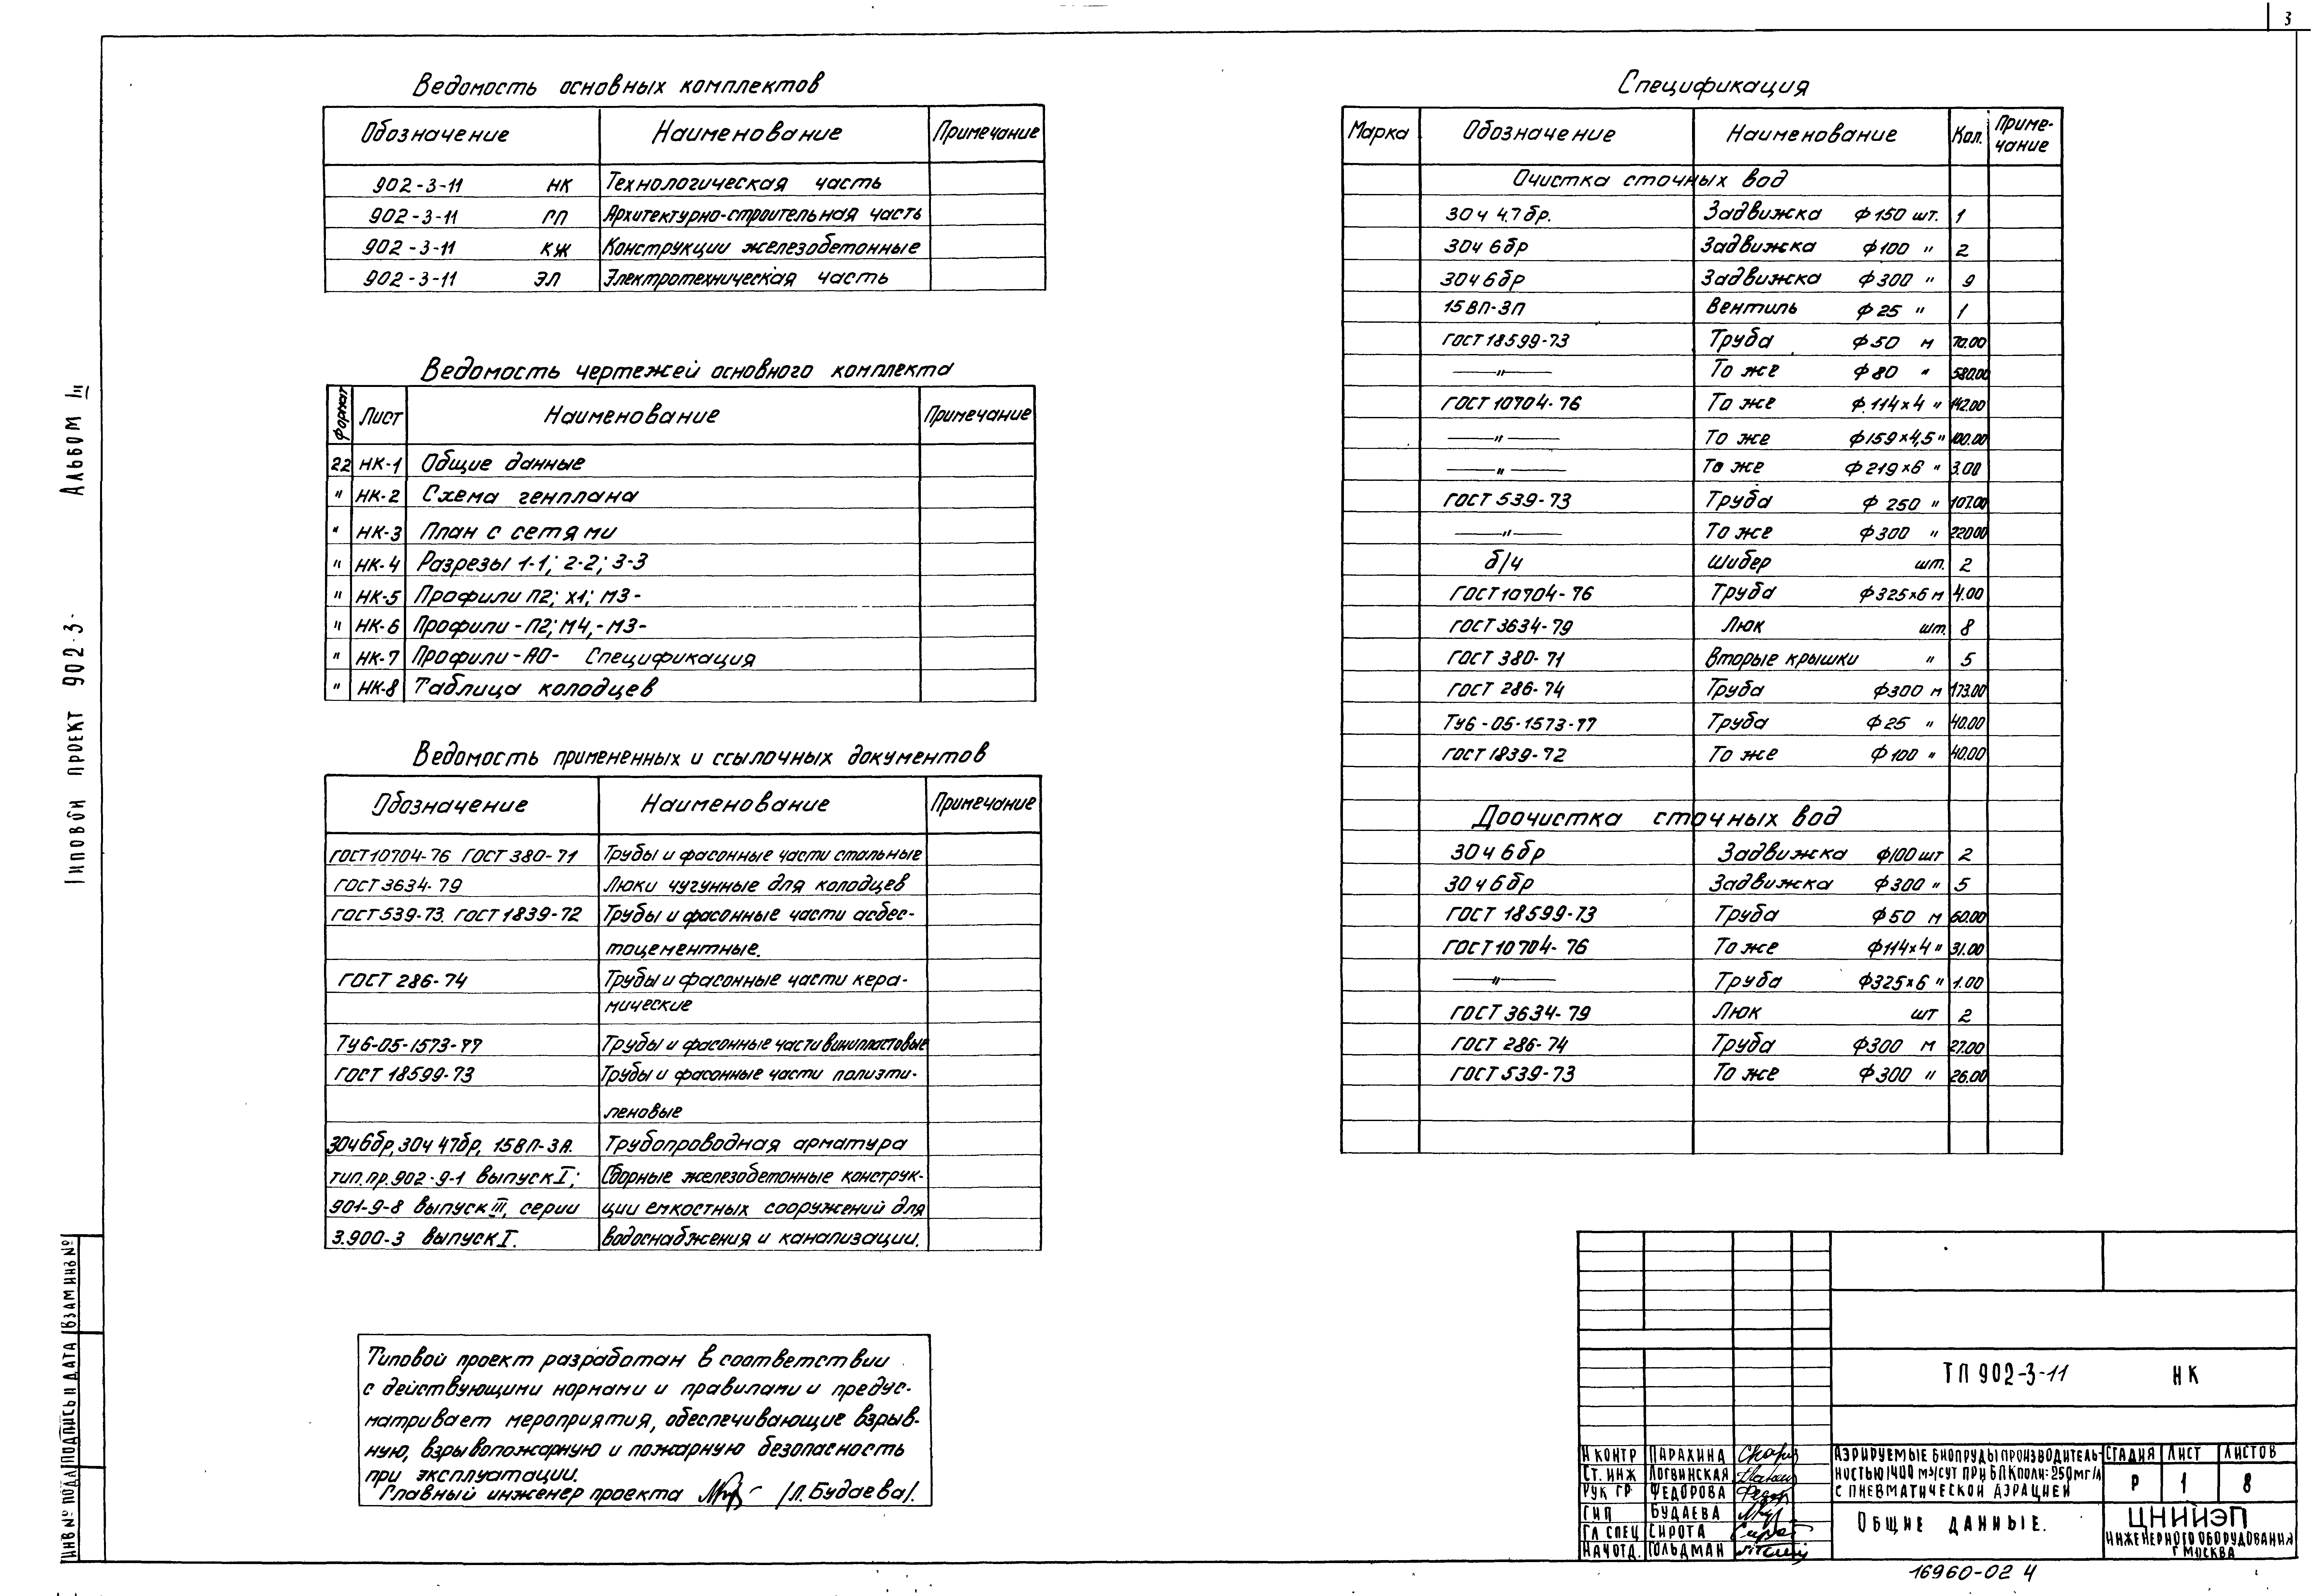 3
Альбом III
Типовой проект 902-3-
Ведомость основных комплектов
Обозначение Наименование Примечание
902-3-11 НК Технологическая часть
902-3-11 ГП Архитектурно-строительная часть
902-3-11 КЖ Конструкции железобетонные
902-3-11 ЭЛ Электротехническая часть
Ведомость чертежей основного комплекта
Формат Лист Наименование Примечание
22 НК-1 Общие данные
" НК-2 Схема генплана
" НК-3 План с сетями
" НК-4 Разрезы 1-1; 2-2; 3-3
" НК-5 Профили П2; Х1; М3-
" НК-6 Профили -П2; М4,-М3-
" НК-7 Профили -А0- Спецификация
" НК-8 Таблица колодцев
Ведомость примененных и ссылочных документов
Обозначение Наименование Примечание
ГОСТ 10704-76 ГОСТ 380-71 Трубы и фасонные части стальные
ГОСТ 3634-79 Люки чугунные для колодцев
ГОСТ 539-73. ГОСТ 1839-72 Трубы и фасонные части асбес-
тоцементные.
ГОСТ 286-74 Трубы и фасонные части кера-
мические
ТУ6-05-1573-77 Трубы и фасонные части винипластовые
ГОСТ 18599-73 Трубы и фасонные части полиэти-
леновые
30ч6бр, 30ч 47бр, 15ВП-3П. Трубопроводная арматура
тип.пр.902-9-1 выпуск I; Сборные железобетонные конструк-
901-9-8 выпуск III, серии ции емкостных сооружений для
3.900-3 выпуск I. водоснабжения и канализации.
Типовой проект разработан в соответствии
с действующими нормами и правилами и предус-
матривает мероприятия, обеспечивающие взрыв-
ную, взрывопожарную и пожарную безопасность
при эксплуатации.
Главный инженер проекта /Л.Будаева/.
Спецификация
Марка Обозначение Наименование Кол. Приме-
чание
Очистка сточных вод
30ч 47бр. Задвижка ф150 шт. 1
30ч 6бр Задвижка ф100 " 2
30ч6бр Задвижка ф300 " 9
15ВП-3П Вентиль ф25 " 1
ГОСТ 18599-73 Труба ф50 м 70.00
—"— То же ф80 " 580.00
ГОСТ 10704-76 То же ф.114×4 " 142.00
—"— То же ф159×4,5 " 100.00
—"— То же ф219×6 " 3.00
ГОСТ 539-73 Труба ф 250 " 107.00
—"— То же ф300 " 220.00
б/ч Шибер шт. 2
ГОСТ 10704-76 Труба ф325×6 м 4.00
ГОСТ 3634-79 Люк шт. 8
ГОСТ 380-71 Вторые крышки " 5
ГОСТ 286-74 Труба ф300 м 173.00
ТУ6-05-1573-77 Труба ф25 " 40.00
ГОСТ 1839-72 То же ф100 " 40.00
Доочистка сточных вод
30ч 6бр Задвижка ф100 шт 2
30ч6бр Задвижка ф300 " 5
ГОСТ 18599-73 Труба ф50 м 60.00
ГОСТ 10704-76 То же ф114×4 " 31.00
—"— Труба ф325×6 " 1.00
ГОСТ 3634-79 Люк шт 2
ГОСТ 286-74 Труба ф300 м 27.00
ГОСТ 539-73 То же ф300 " 26.00
ТП 902-3-11 НК
Н КОНТР ПАРАХИНА
СТ. ИНЖ ЛОГВИНСКАЯ
РУК ГР ФЕДОРОВА
ГИП БУДАЕВА
ГЛ СПЕЦ СИРОТА
НАЧ ОТД. ГОЛЬДМАН
АЭРИРУЕМЫЕ БИОПРУДЫ ПРОИЗВОДИТЕЛЬ-
НОСТЬЮ 1400 м3/СУТ ПРИ БПКполн=250МГ/Л
С ПНЕВМАТИЧЕСКОЙ АЭРАЦИЕЙ
СТАДИЯ ЛИСТ ЛИСТОВ
Р 1 8
ОБЩИЕ ДАННЫЕ.
ЦНИИЭП
ИНЖЕНЕРНОГО ОБОРУДОВАНИЯ
Г МОСКВА
16960-02 4
ИНВ № ПОДЛ ПОДПИСЬ И ДАТА ВЗАМ ИНВ №